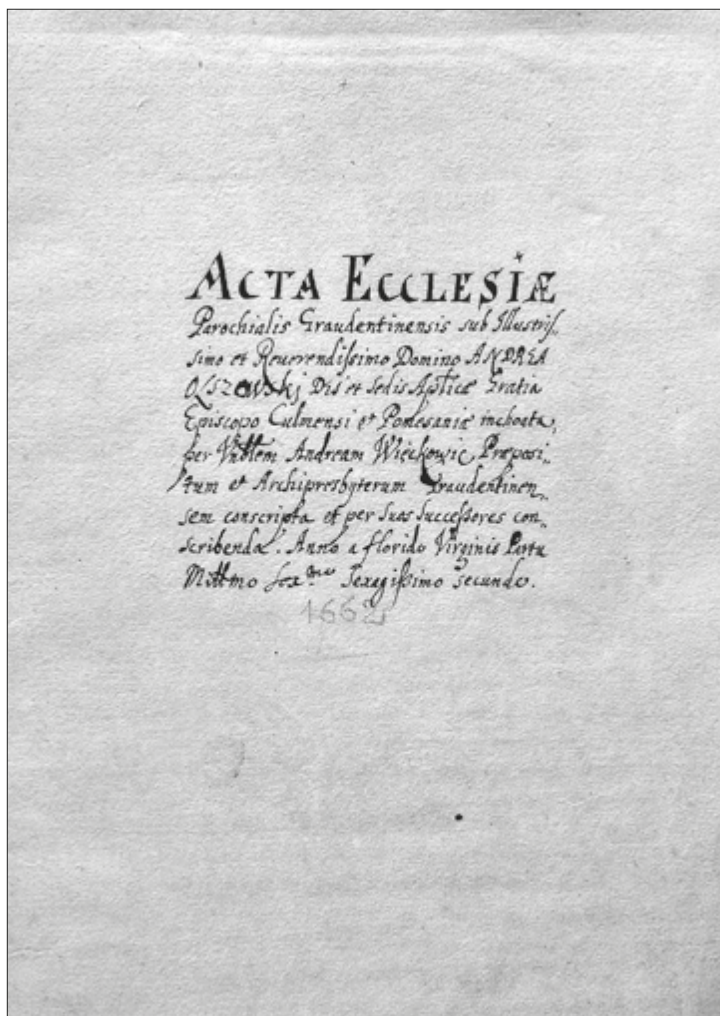 ACTA ECCLESIÆ
Parochialis Graudentinensis sub Illustris-
simo et Reverendissimo Domino ANDREA
Olszowskj Dei et Sedis Aplicæ Gratia
Episcopo Culmensi et Pomesaniæ inchoata,
per Andream Więckowic Præposi-
tum et Archipresbyterum Graudentinen-
sem conscripta et per suos successores con-
scribenda. Anno a florido Virginis Partu
Millmo Sexmo Sexagissimo secundo.
1662